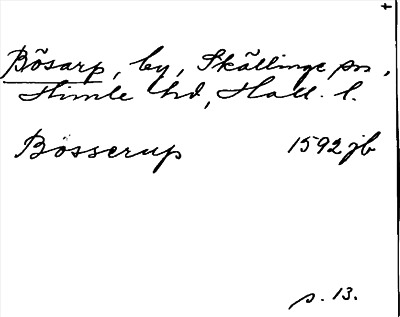 Bösarp, by, Skällinge sn,
Himle hd, Hall. l.
Bösserup 1592 jb
s. 13.